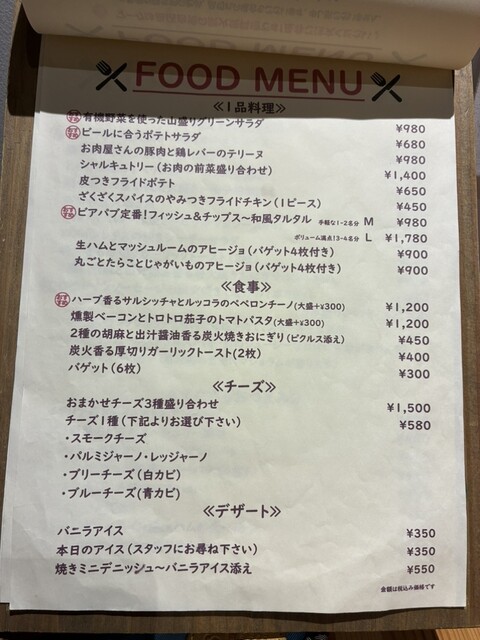 FOOD MENU
≪1品料理≫
おすすめ 有機野菜を使った山盛りグリーンサラダ ¥980
おすすめ ビールに合うポテトサラダ ¥680
お肉屋さんの豚肉と鶏レバーのテリーヌ ¥980
シャルキュトリー(お肉の前菜盛り合わせ) ¥1,400
皮つきフライドポテト ¥650
ざくざくスパイスのやみつきフライドチキン(1ピース) ¥450
おすすめ ビアパブ定番!フィッシュ&チップス~和風タルタル 手軽な1-2名分 M ¥980
ボリューム満点!3-4名分 L ¥1,780
生ハムとマッシュルームのアヒージョ(バゲット4枚付き) ¥900
丸ごとたらことじゃがいものアヒージョ(バゲット4枚付き) ¥900
≪食事≫
おすすめ ハーブ香るサルシッチャとルッコラのペペロンチーノ(大盛+¥300) ¥1,200
燻製ベーコンとトロトロ茄子のトマトパスタ(大盛+¥300) ¥1,200
2種の胡麻と出汁醤油香る炭火焼きおにぎり(ピクルス添え) ¥450
炭火香る厚切りガーリックトースト(2枚) ¥400
バゲット(6枚) ¥300
≪チーズ≫
おまかせチーズ3種盛り合わせ ¥1,500
チーズ1種(下記よりお選び下さい) ¥580
・スモークチーズ
・パルミジャーノ・レッジャーノ
・ブリーチーズ(白カビ)
・ブルーチーズ(青カビ)
≪デザート≫
バニラアイス ¥350
本日のアイス(スタッフにお尋ね下さい) ¥350
焼きミニデニッシュ~バニラアイス添え ¥550
金額は税込み価格です